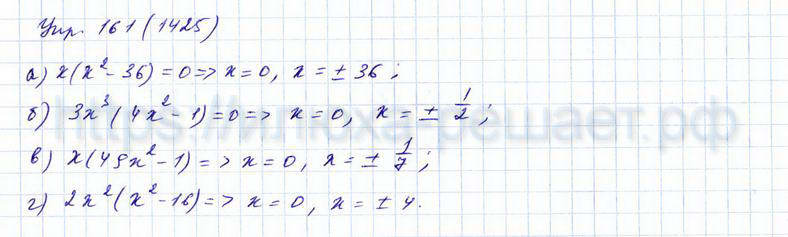 Упр. 161 (1425)
а) x(x² - 36) = 0 => x = 0, x = ± 36;
б) 3x³(4x² - 1) = 0 => x = 0, x = ± 1/2;
в) x(49x² - 1) => x = 0, x = ± 1/7;
г) 2x²(x² - 16) => x = 0, x = ± 4.
https://илюха-решает.рф